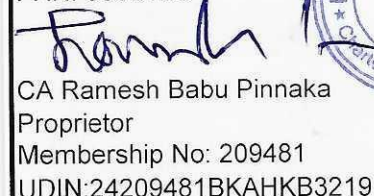 CA Ramesh Babu Pinnaka
Proprietor
Membership No: 209481
UDIN:24209481BKAHKB3219